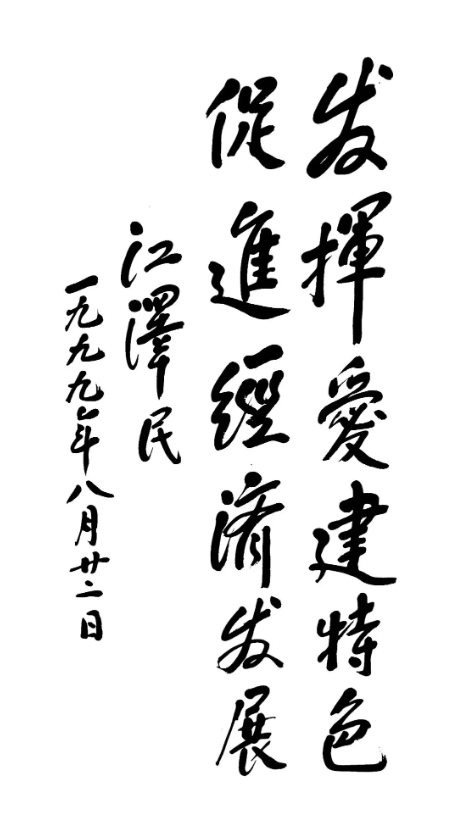 发揮愛建特色
促進經济发展
江澤民
一九九九年八月廿二日